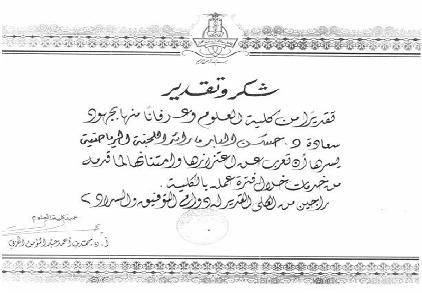 شكر وتقدير
تقديرًا من كلية العلوم وعرفانًا منها بجهود
سعادة د. حسن رائد اللجنة الرياضية
يسرها أن تعرب عن اعتزازها وامتنانها لما قدمه
من خدمات خلال فترة عمله بالكلية.
راجين من العلي القدير له دوام التوفيق والسداد ،
عميد كلية العلوم
أ. د. محمد بن أحمد عبد